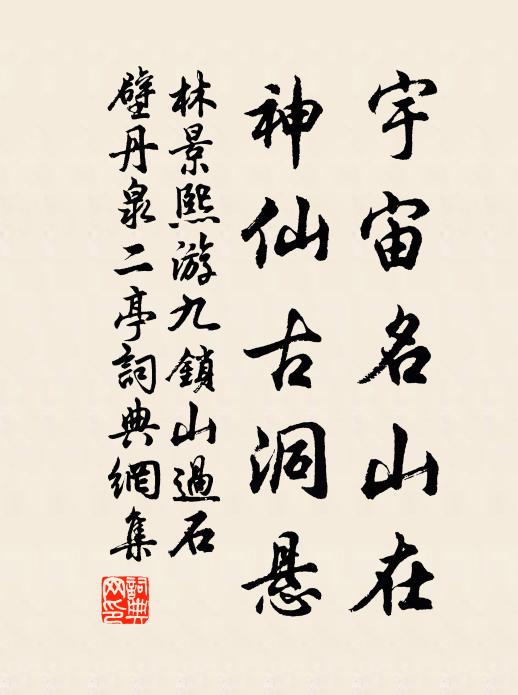 宇宙名山在
神仙古洞悬
林景熙游九鎖山過石
壁丹泉二亭詞典網集
詞典网印